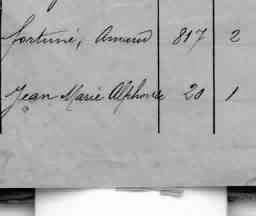 fortuné, Amand 817 2
Jean Marie Alphonse 20 1